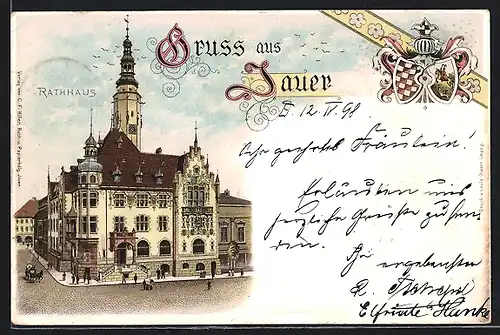 Gruss aus
Jauer
RATHHAUS
Verlag von C. F. Hiller, Buch- u. Papierhdlg. Jauer
J. 12. IV. 98
Sehr geehrtes Fräulein!
Erlauben uns
herzliche Grüsse zu sen-
den.
Ihr ergebenster